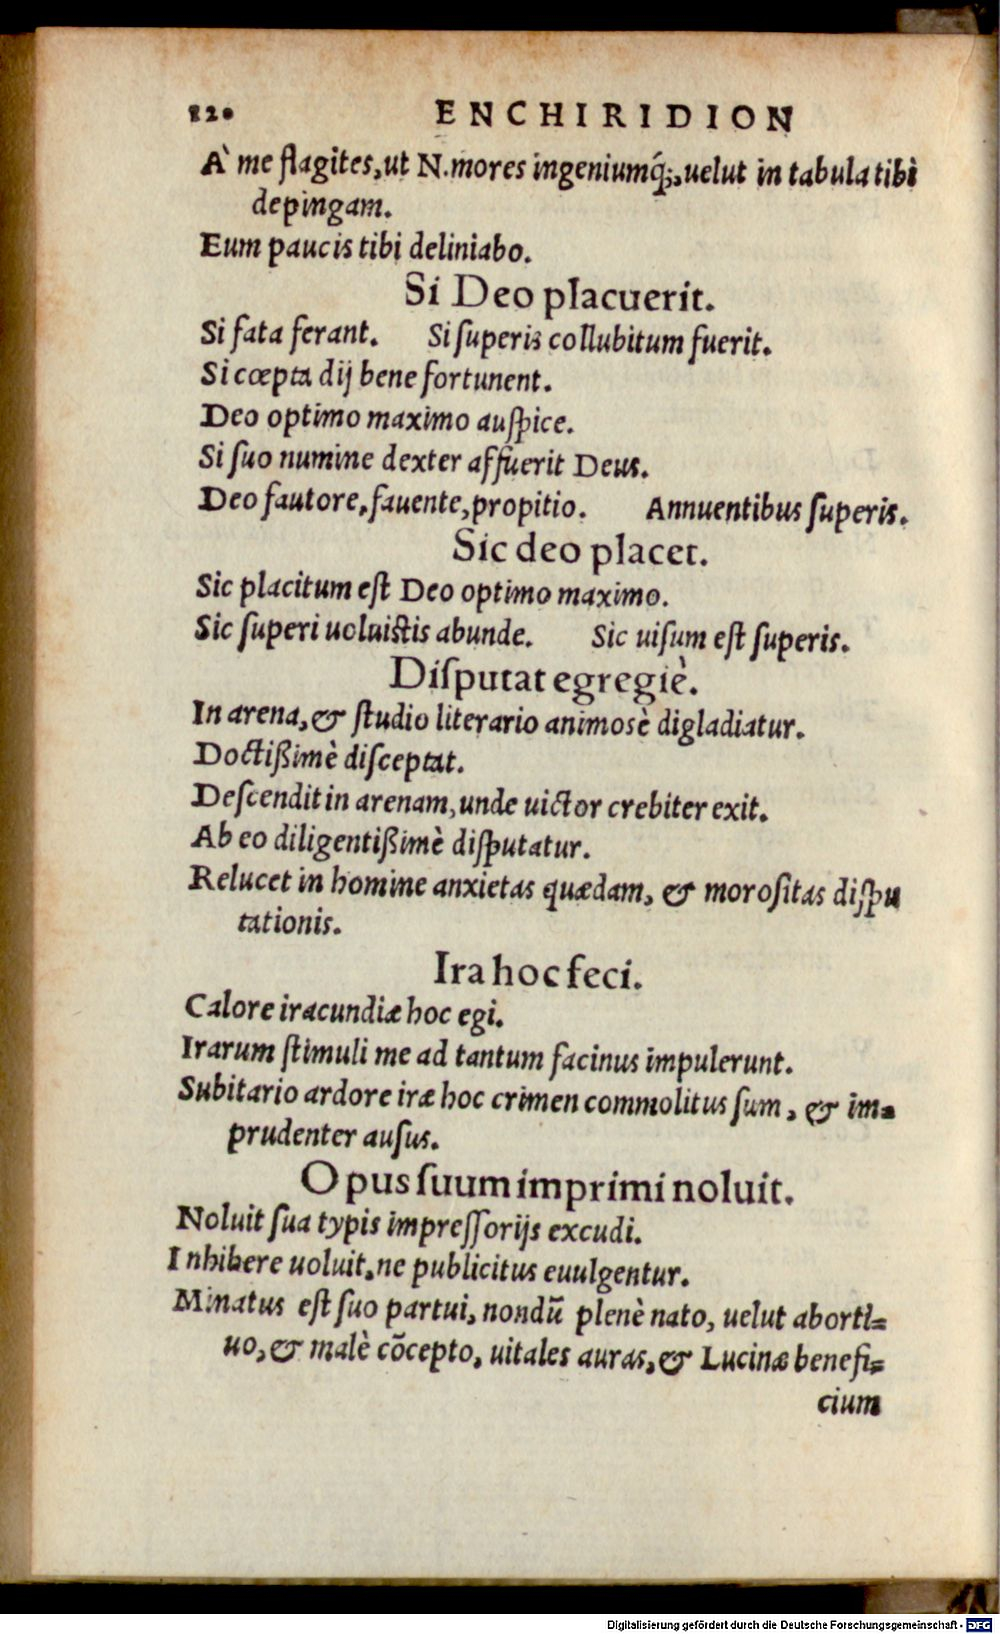 120 ENCHIRIDION
À me flagites, ut N. mores ingeniumq́;, uelut in tabula tibi
depingam.
Eum paucis tibi deliniabo.
Si Deo placuerit.
Si fata ferant. Si ſuperis collubitum fuerit.
Si cœpta dij bene fortunent.
Deo optimo maximo auſpice.
Si ſuo numine dexter affuerit Deus.
Deo fautore, fauente, propitio. Annuentibus ſuperis.
Sic deo placet.
Sic placitum eſt Deo optimo maximo.
Sic ſuperi uoluiſtis abunde. Sic uiſum eſt ſuperis.
Diſputat egregiè.
In arena, & ſtudio literario animosè digladiatur.
Doctißimè diſceptat.
Deſcendit in arenam, unde uictor crebiter exit.
Ab eo diligentißimè diſputatur.
Relucet in homine anxietas quædam, & moroſitas diſpu
tationis.
Ira hoc feci.
Calore iracundiæ hoc egi.
Irarum ſtimuli me ad tantum facinus impulerunt.
Subitario ardore iræ hoc crimen commolitus ſum, & im⸗
prudenter auſus.
Opus ſuum imprimi noluit.
Noluit ſua typis impreſſorijs excudi.
Inhibere uoluit, ne publicitus euulgentur.
Minatus eſt ſuo partui, nondũ plenè nato, uelut aborti⸗
uo, & malè cõcepto, uitales auras, & Lucinæ benefi⸗
cium
Digitalisierung gefördert durch die Deutsche Forschungsgemeinschaft - DFG